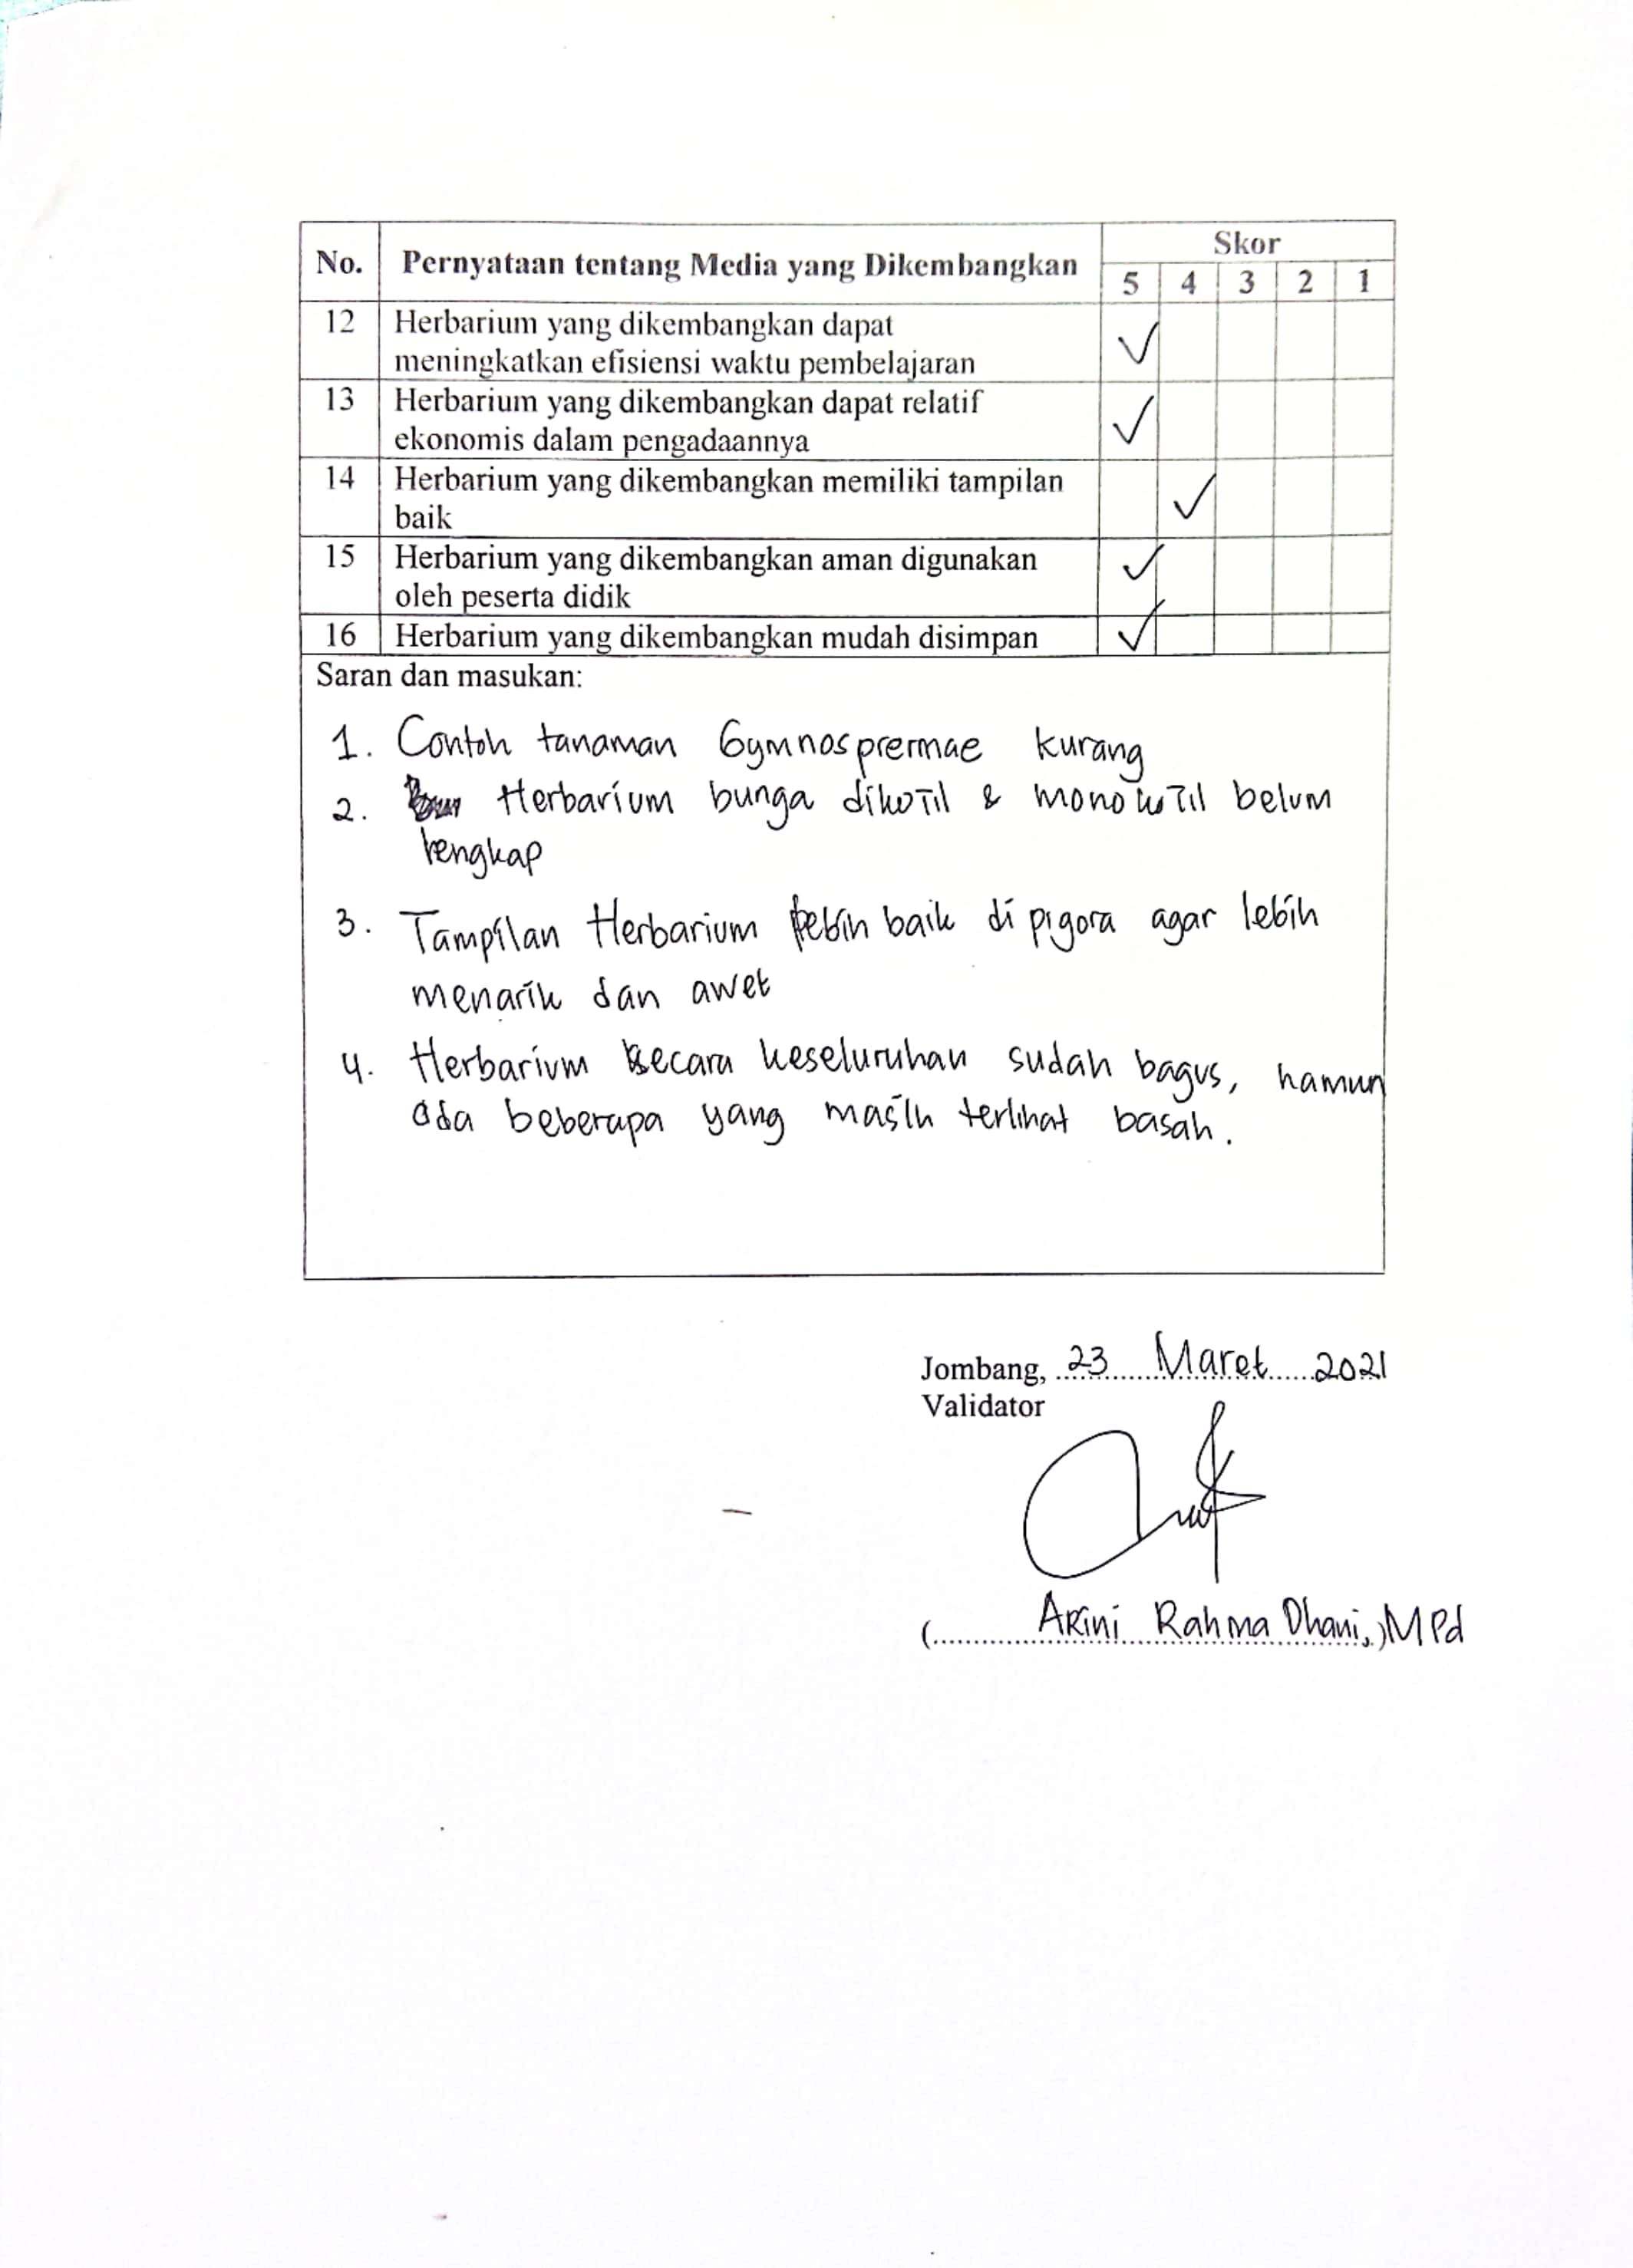 No. Pernyataan tentang Media yang Dikembangkan Skor
5 4 3 2 1
12 Herbarium yang dikembangkan dapat ✓
meningkatkan efisiensi waktu pembelajaran
13 Herbarium yang dikembangkan dapat relatif ✓
ekonomis dalam pengadaannya
14 Herbarium yang dikembangkan memiliki tampilan ✓
baik
15 Herbarium yang dikembangkan aman digunakan ✓
oleh peserta didik
16 Herbarium yang dikembangkan mudah disimpan ✓
Saran dan masukan:
1. Contoh tanaman Gymnosprermae kurang
2. Herbarium bunga dikotil & monokotil belum
lengkap
3. Tampilan Herbarium lebih baik di pigora agar lebih
menarik dan awet
4. Herbarium secara keseluruhan sudah bagus, namun
ada beberapa yang masih terlihat basah.
Jombang, 23 Maret 2021
Validator
(Arini Rahma Dhani,) MPd